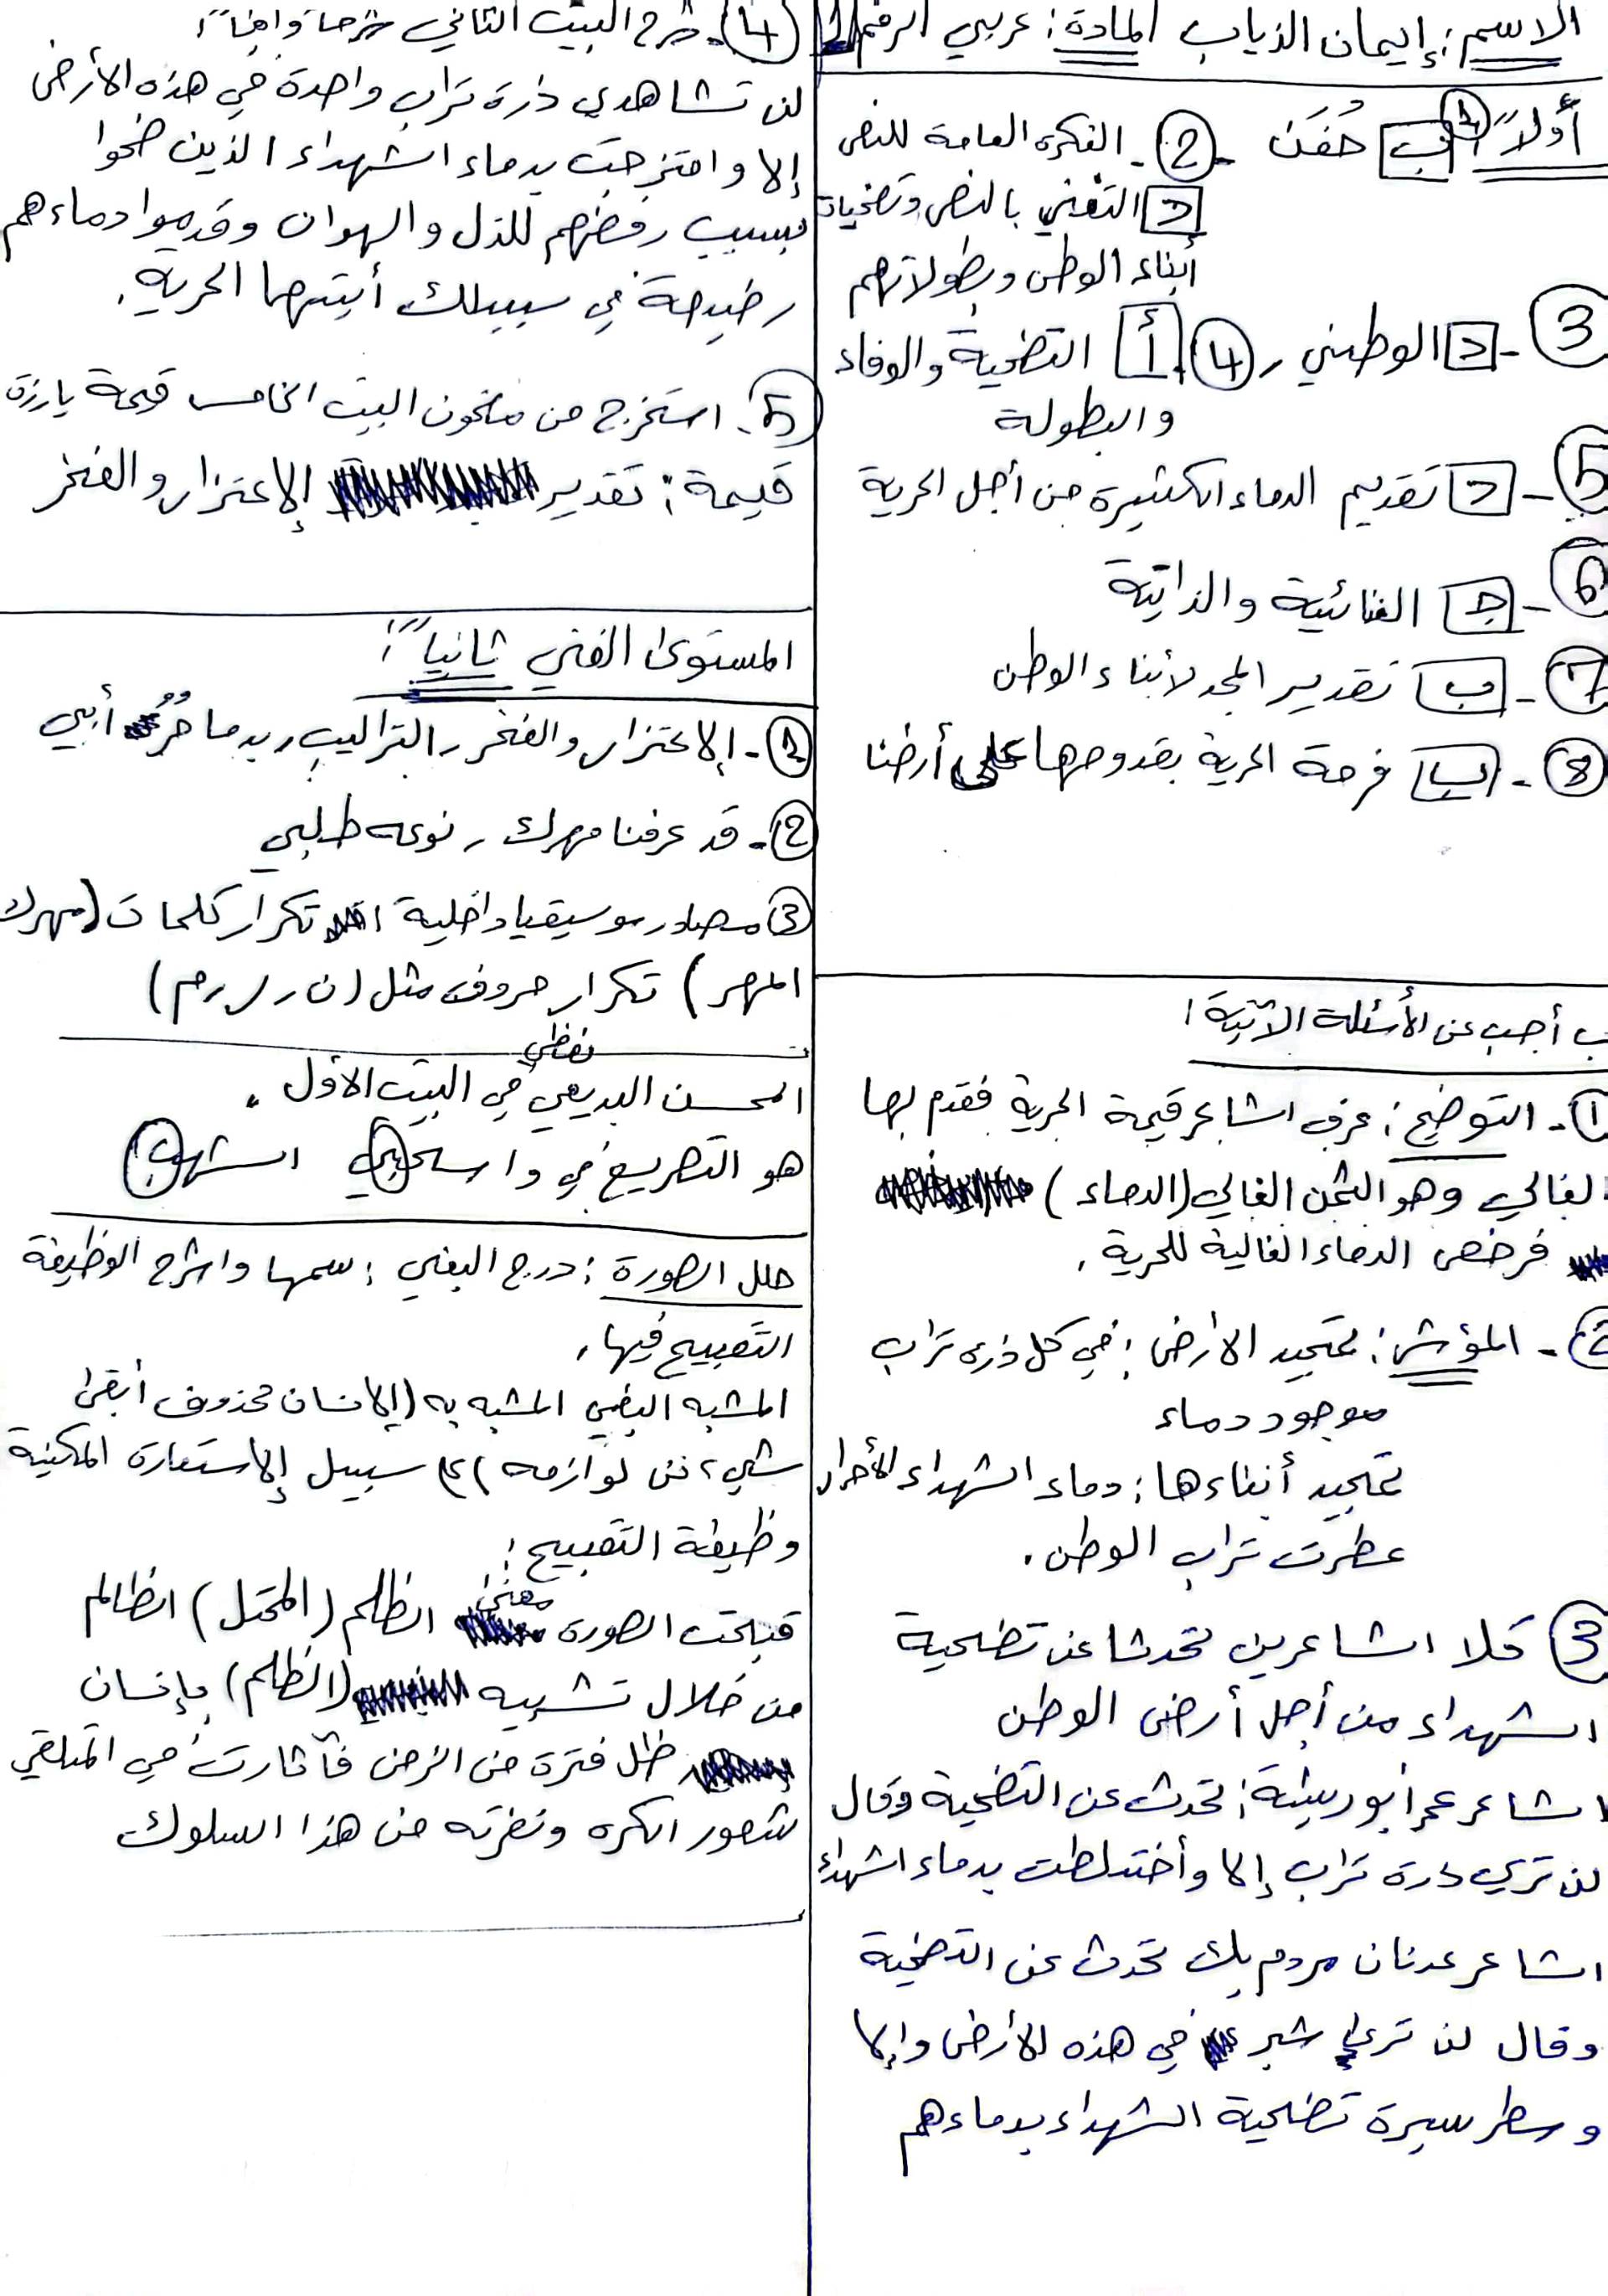 الاسم: إيمان الذياب المادة: عربي الرقم 1
أولاً 1 ب حُفَن
2- الفكرة العامة للنص
د التغني بالنصر وتضحيات
أبناء الوطن وبطولاتهم
3- د الوطني ، 4 أ التضحية والوفاء
والبطولة
5- د تقديم الدماء الكثيرة من أجل الحرية
6- ج الغنائية والذاتية
7- ب تقدير المجد لأبناء الوطن
8- ب فرحة الحرية بقدومها على أرضنا
ب أجب عن الأسئلة الآتية:
1- التوضيح: عرف الشاعر قيمة الحرية فقدم لها
الغالي وهو الثمن الغالي (الدماء)
فرخص الدماء الغالية للحرية.
2- المؤشر: تمجيد الارض: في كل ذرة تراب
موجود دماء
تمجيد أبناءها: دماء الشهداء الأحرار
عطرت تراب الوطن.
3 كلا الشاعرين تحدثا عن تضحية
الشهداء من أجل أرض الوطن
الشاعر عمر أبو ريشة: تحدث عن التضحية وقال
لن تري ذرة تراب إلا وأختلطت بدماء الشهداء
الشاعر عدنان مردم بك تحدث عن التضحية
وقال لن ترى شبر في هذه الأرض وإلا
وسطر سيرة تضحية الشهداء بدماءهم
4- شرح البيت الثاني شرحاً وافياً:
لن تشاهدي ذرة تراب واحدة في هذه الأرض
إلا وامتزجت بدماء الشهداء الذين ضحوا
بسبب رفضهم للذل والهوان وقدموا دماءهم
رخيصة في سبيلك أيتها الحرية.
5- استخرج من مضمون البيت الخامس قيمة بارزة
قيمة: تقدير الإعتزاز والفخر
المستوى الفني ثانياً:
1- الإعتزاز والفخر، التراكيب، بدما حُرٍّ أبي
2- قد عرفنا مهرك، نوعه طلبي
3 مصادر موسيقيا داخلية تكرار كلمات (مهرك
المهر) تكرار حروف مثل (ن، ر، م)
المحسن البديعي لفظي في البيت الأول.
هو التصريع في واسحبي الشهب
حلل الصورة: درج البغي: سمها واشرح الوظيفة
التقبيح فيها.
المشبه البغي المشبه به (الإنسان محذوف أبقى
شيء من لوازمه) على سبيل الإستعارة المكنية
وظيفة التقبيح:
قبحت الصورة معنى الظلم (المحتل) الظالم
من خلال تشبيه (الظلم) بإنسان
ظل فترة من الزمن فأثارت في المتلقي
شعور الكره ونفرته من هذا السلوك